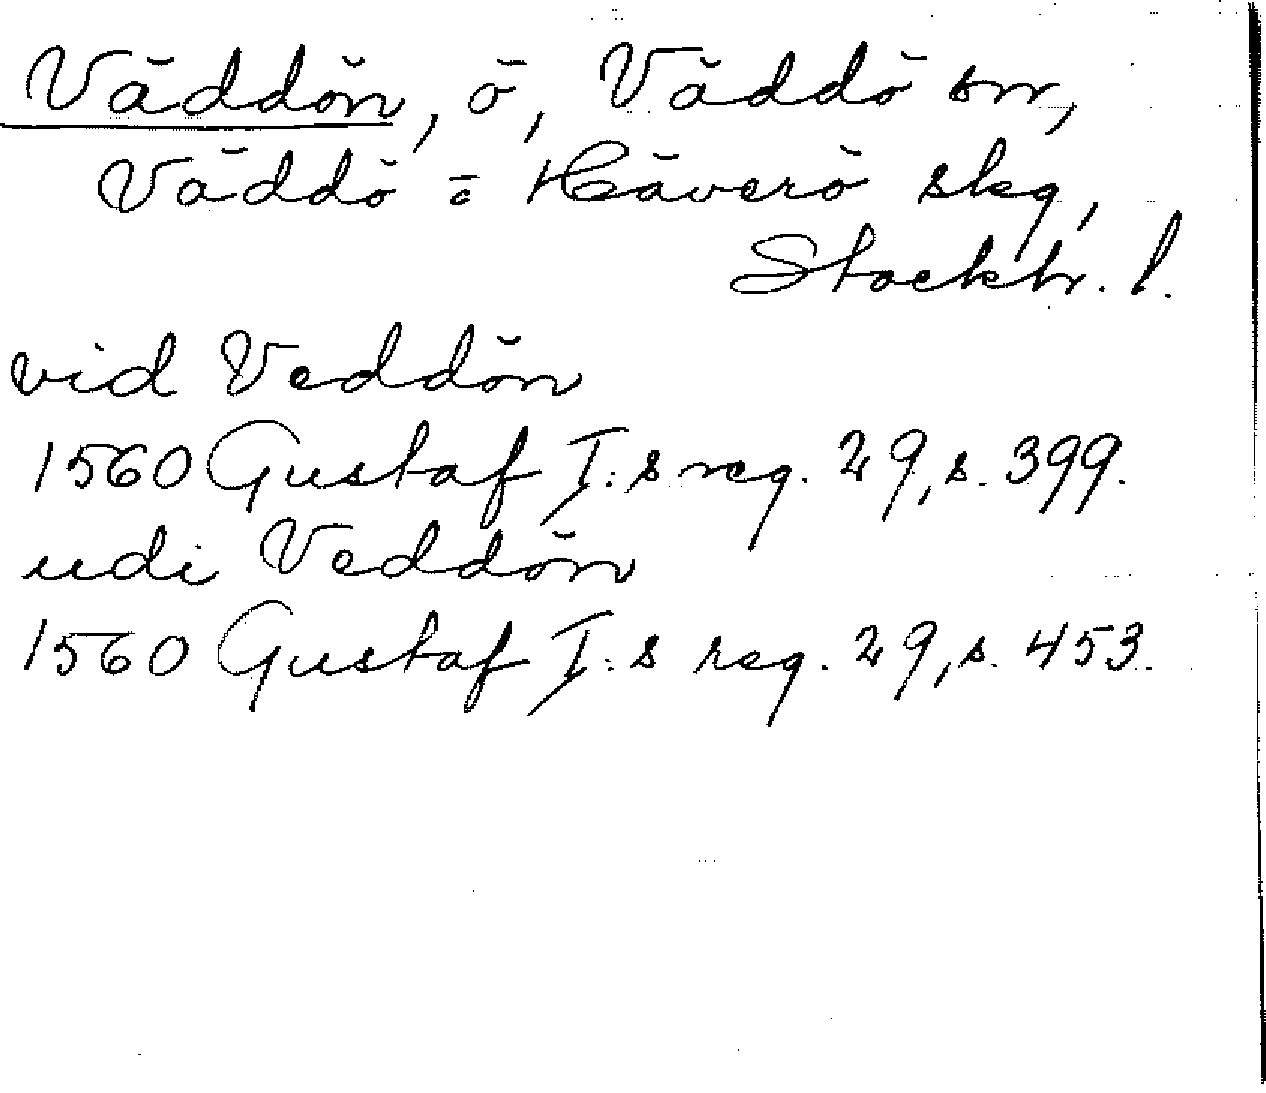 Väddön, ö, Väddö sn,
Väddö o Häverö skg,
Stockh. l.
vid Veddön
1560 Gustaf I:s reg. 29, s. 399.
udi Veddön
1560 Gustaf I:s reg. 29, s. 453.